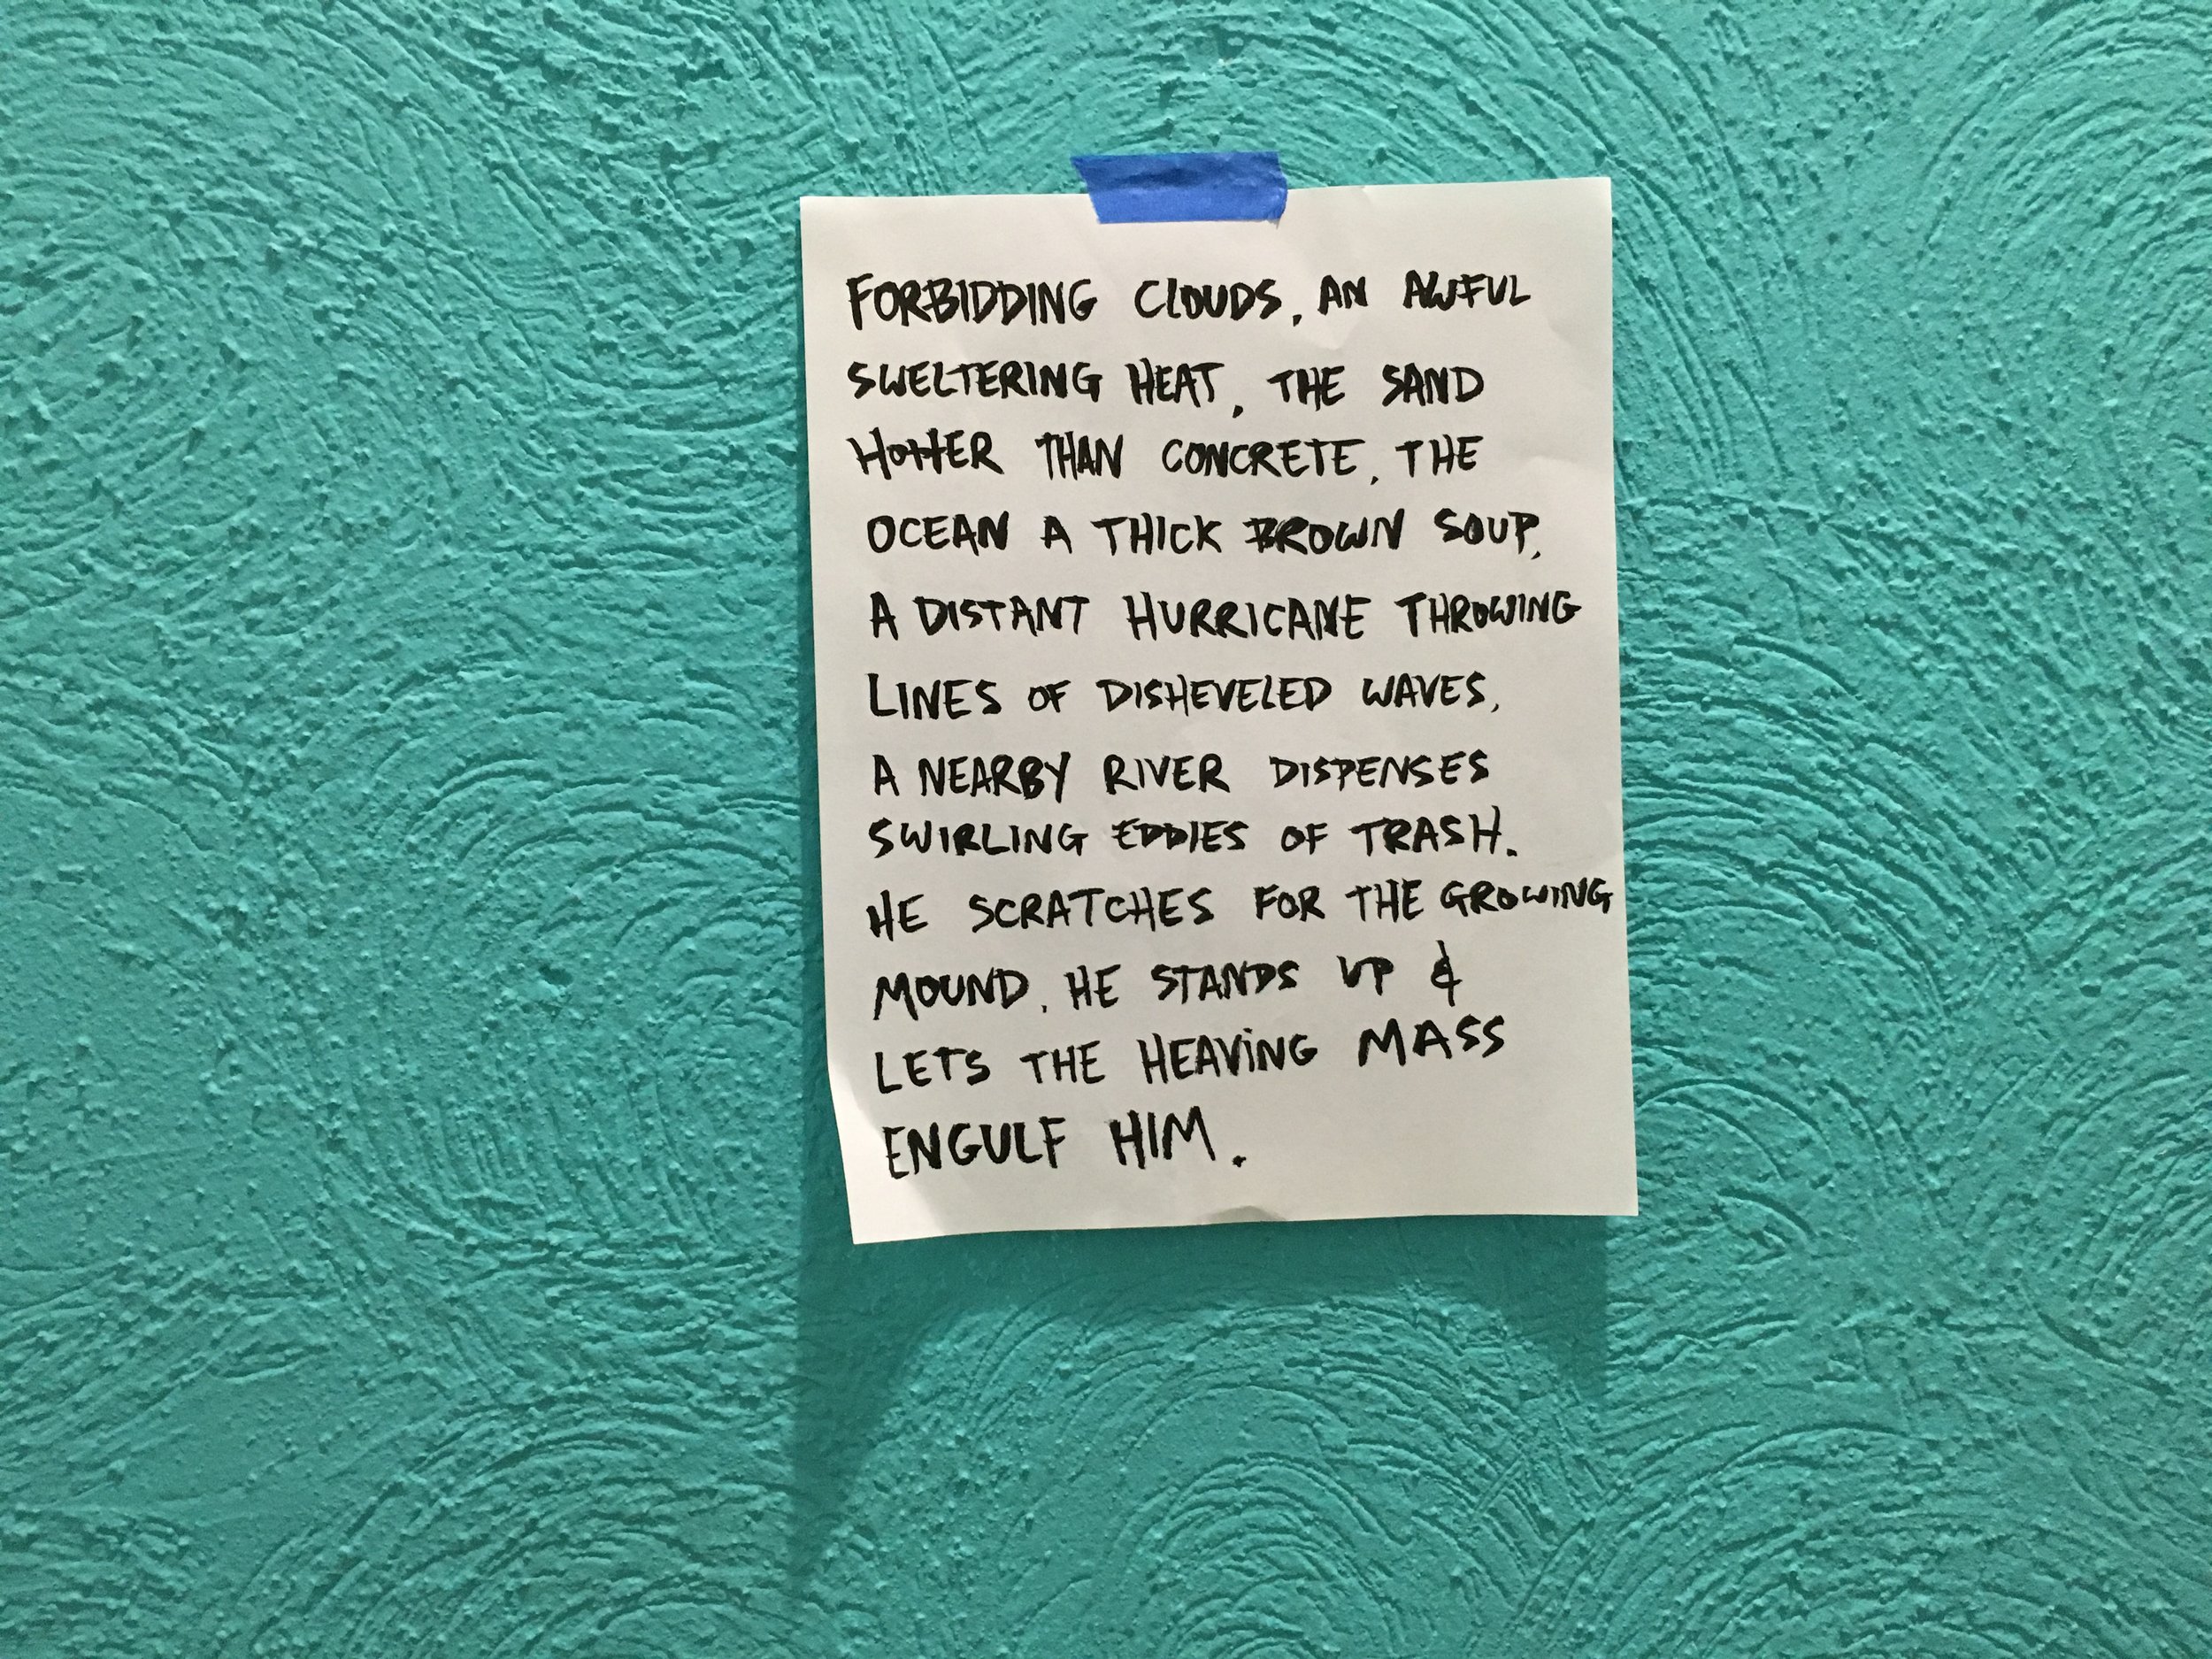 FORBIDDING CLOUDS, AN AWFUL
SWELTERING HEAT, THE SAND
HOTTER THAN CONCRETE, THE
OCEAN A THICK BROWN SOUP,
A DISTANT HURRICANE THROWING
LINES OF DISHEVELED WAVES,
A NEARBY RIVER DISPENSES
SWIRLING EDDIES OF TRASH.
HE SCRATCHES FOR THE GROWING
MOUND, HE STANDS UP &
LETS THE HEAVING MASS
ENGULF HIM.